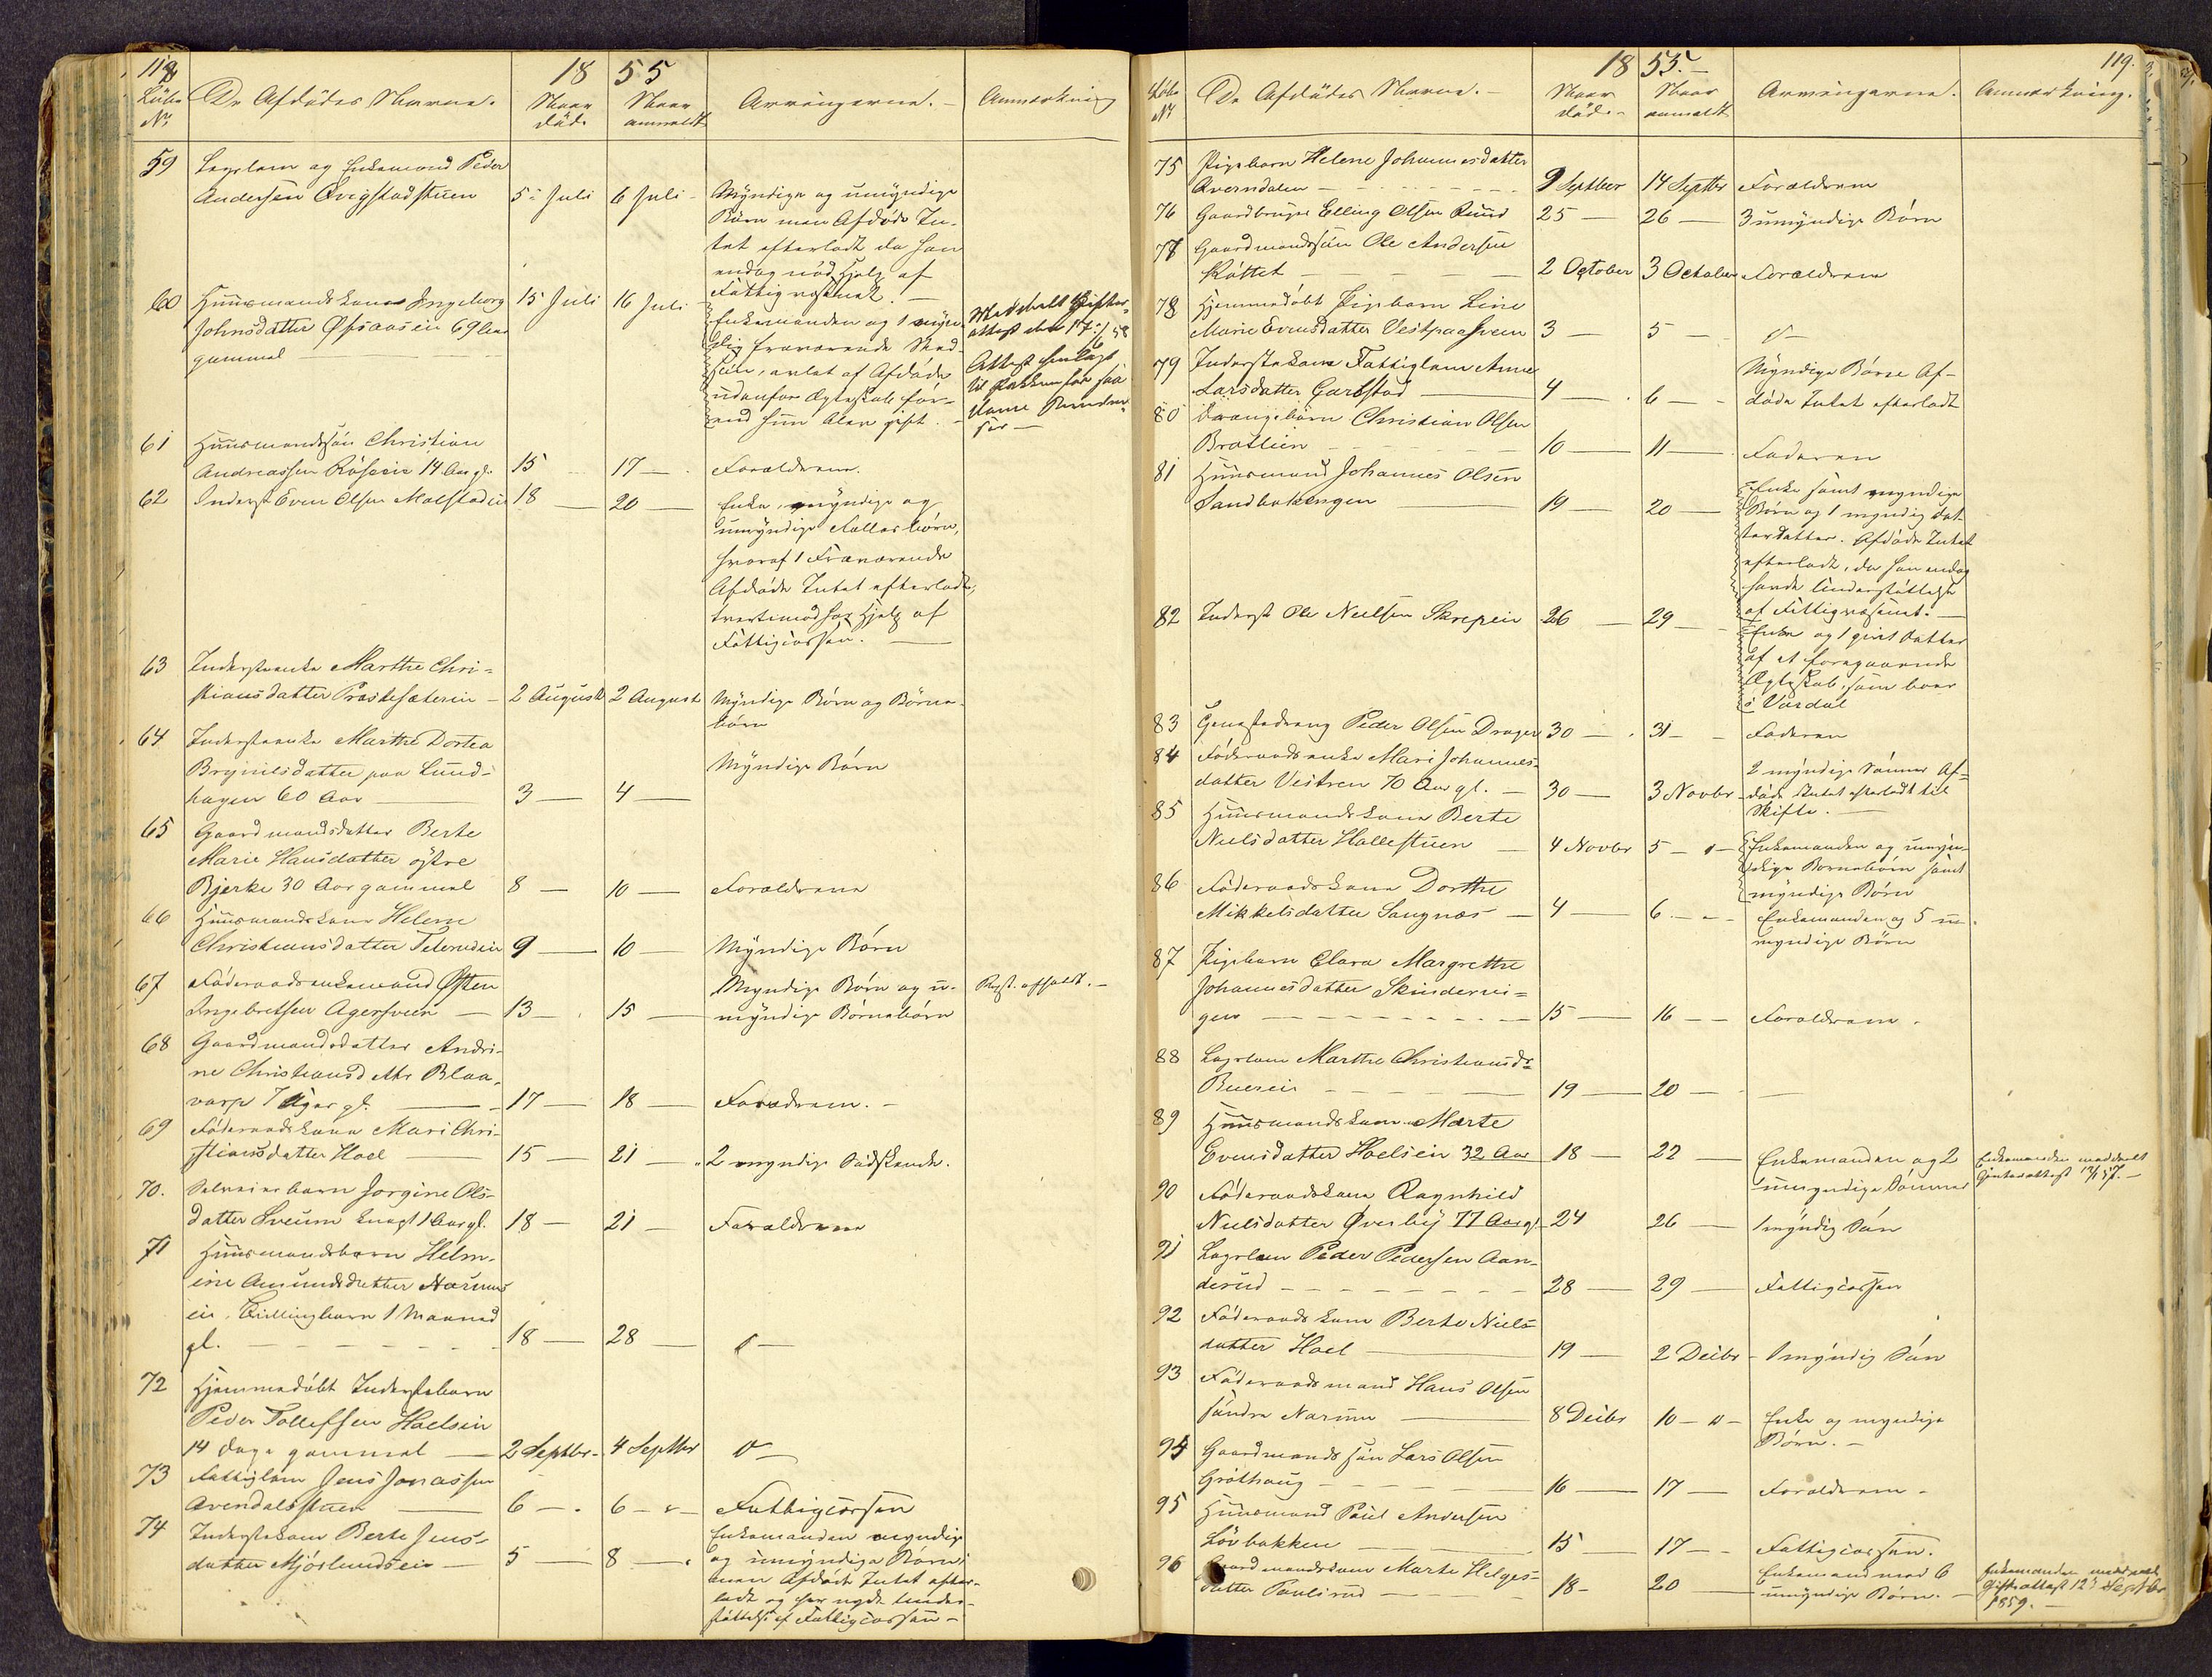 118
1855
Löbe De Afdödes Navne. Naar Naar Arvingerne. Anmærkning
No. död. anmeldt
59 Lægslem og Enkemand Peder
Andersen Qvigstadstuen 5te Juli 6 Juli Myndige og umyndige
Börn men Afdöde In-
tet efterladt da han
endog nöd Hjelp af
Fattigvæsenet.
60 Huusmandskone Ingeborg 15 Juli 16 Juli
Johnsdatter 69 Aar
gammel
Enkemanden og 1 myn-
dig fraværende
avlet af Afdöde
udenfor Ægteskabför-
end hun blev gift.
Meddeelt Gifter-
attest den 17/6 58
Attest henlagt
til Pakken for
61 Huusmandssön Christian
Andreassen 14 Aar gl. 15 17 Forældrene.
62 Inderst Even Olsen Molstadeie 18 20 Enke, myndige og
umyndige Fælles börn,
hvoraf 1 Fraværende
Afdöde Intet efterladt,
tvertimod havt Hjelp af
Fattigcassen.
63 Inderstenke Marthe Chri-
stiansdatter Præstesæterin 2 August 2 August Myndige Börn og Börne-
börn
64 Inderstenke Marthe Dortea
Brynilsdatter paa Lund-
hagen 60 Aar 3 4 Myndige Börn
65 Gaardmandsdatter Berte
Marie Hansdatter östre
Bjerke 30 Aar gammel 8 10 Forældrene
66 Huusmandskone Helene
Christiansdatter 9 10 Myndige Börn
67 Föderaadsenkemand Östen
Ingebretsen Agersveen 13 15 Myndige Börn og u-
myndige Börnebörn Regst. afholdt.
68 Gaardmandsdatter Andri-
ne Christiansdatter Blaa-
varp 7 Uger gl. 17 18 Forældrene.
69 Föderaadskone Mari Chri-
stiansdatter Hoel 15 21 2 myndige Södskende.
70. Selveierbarn Jorgine Ols-
datter Sveum knapt 1 Aar gl. 18 21 Forældrene
71 Huusmandsbarn Helm-
ine Amundsdatter Narum-
eie, Tvillingbarn 1 Maaned
gl. 18 28
72 Hjemmedöbt Inderstebarn
Peder Tollefsen Hoelseie
14 dage gammel 2 Septbr 4 Septbr
73 Fattiglem Jens Jonassen
Avendalsstuen 6 6 Fattigcassen
74 Inderstekone Berte Jens-
datter Mjörlundseie 5 8 Enkemanden myndige
og umyndige Börn;
men Afdöde Intet efter-
ladt og har nydt Under-
stöttelse af Fattigcassen
119.
1855.
Löbe De Afdödes Navne. Naar Naar Arvingerne. Anmærkning.
No död. anmeldt
75 Pigebarn Helene Johannesdatter
Qverndalen 9 Septber 14 Septbr Forældrene
76 Gaardbruger Elling Olsen Ruud 25 26 3 umyndige Börn
77 Gaardmandssön Ole Andersen
Köttet 2 October 3 October Forældrene
78 Hjemmedöbt Pigebarn Line
Marie Evensdatter Vestpaasveen 3 5
79 Inderstekone Fattiglem Anne
Larsdatter Garlstad 4 6 Myndige Börn Af-
döde Intet efterladt
80 Drengebarn Christian Olsen
Bratlien 10 11 Faderen
81 Huusmand Johannes Olsen
Sandbakengen 19 20 Enke samt myndige
Börn og 1 myndig Dat-
terdatter. Afdöde Intet
efterladt, da han endog
havde Understöttelse
af Fattigvæsenet.
82 Inderst Ole Nielsen Skrepeie 26 29 Enke og 1 givt Datter
af et foregaaende
Ægteskab, som boer
i Vardal
83 Peder Olsen Drager 30 31 Faderen
84 Föderaadsenke Mari Johannes-
datter Vestren 70 Aar gl. 30 3 Novbr 2 myndige Sönner Af-
döde Intet efterladt til
Skifte.
85 Huusmandskone Berte
Nielsdatter Hallestuen 4 Novbr 5 Enkemanden og umyn-
dige Bornebörn samt
myndige Börn
86 Föderaadskone Dorthe
Mikkelsdatter Sangnæs 4 6 Enkemanden og 5 u-
myndige Börn
87 Pigebarn Clara Margrethe
Johannesdatter Skinderei-
gen 15 16 Forældrene.
88 Lægslem Marthe Christiansd-
Rueseie 19 20
89 Huusmandskone Marte
Evensdatter Hoelseie 32 Aar 18 22 Enkemanden og 2
umyndige Sönner
Enkemanden meddeelt
Gifterattest 12/1 57.
90 Föderaadskone Ragnhild
Nielsdatter Överby 77 Aar gl 24 26 1 myndig Sön
91 Lægslem Peder Pedersen Aan-
derud 28 29 Fattigcassen
92 Föderaadskone Berte Niels-
datter Hoel 19 2 Decbr 1 myndig Sön
93 Föderaadsmand Hans Olsen
söndre Narum 8 Decbr 10 Enke og myndige
Börn.
94 Gaardmandssön Lars Olsen
Gröthaug 16 17 Forældrene.
95 Huusmand Paul Andersen
Lövbakken 15 17 Fattigcassen.
96 Gaardmandskone Marte Helges-
datter Paulsrud 18 20 Enkemand med 6
umyndige Börn.
Enkemanden meddeelt
Gifteattest 12te Septbr
1859.